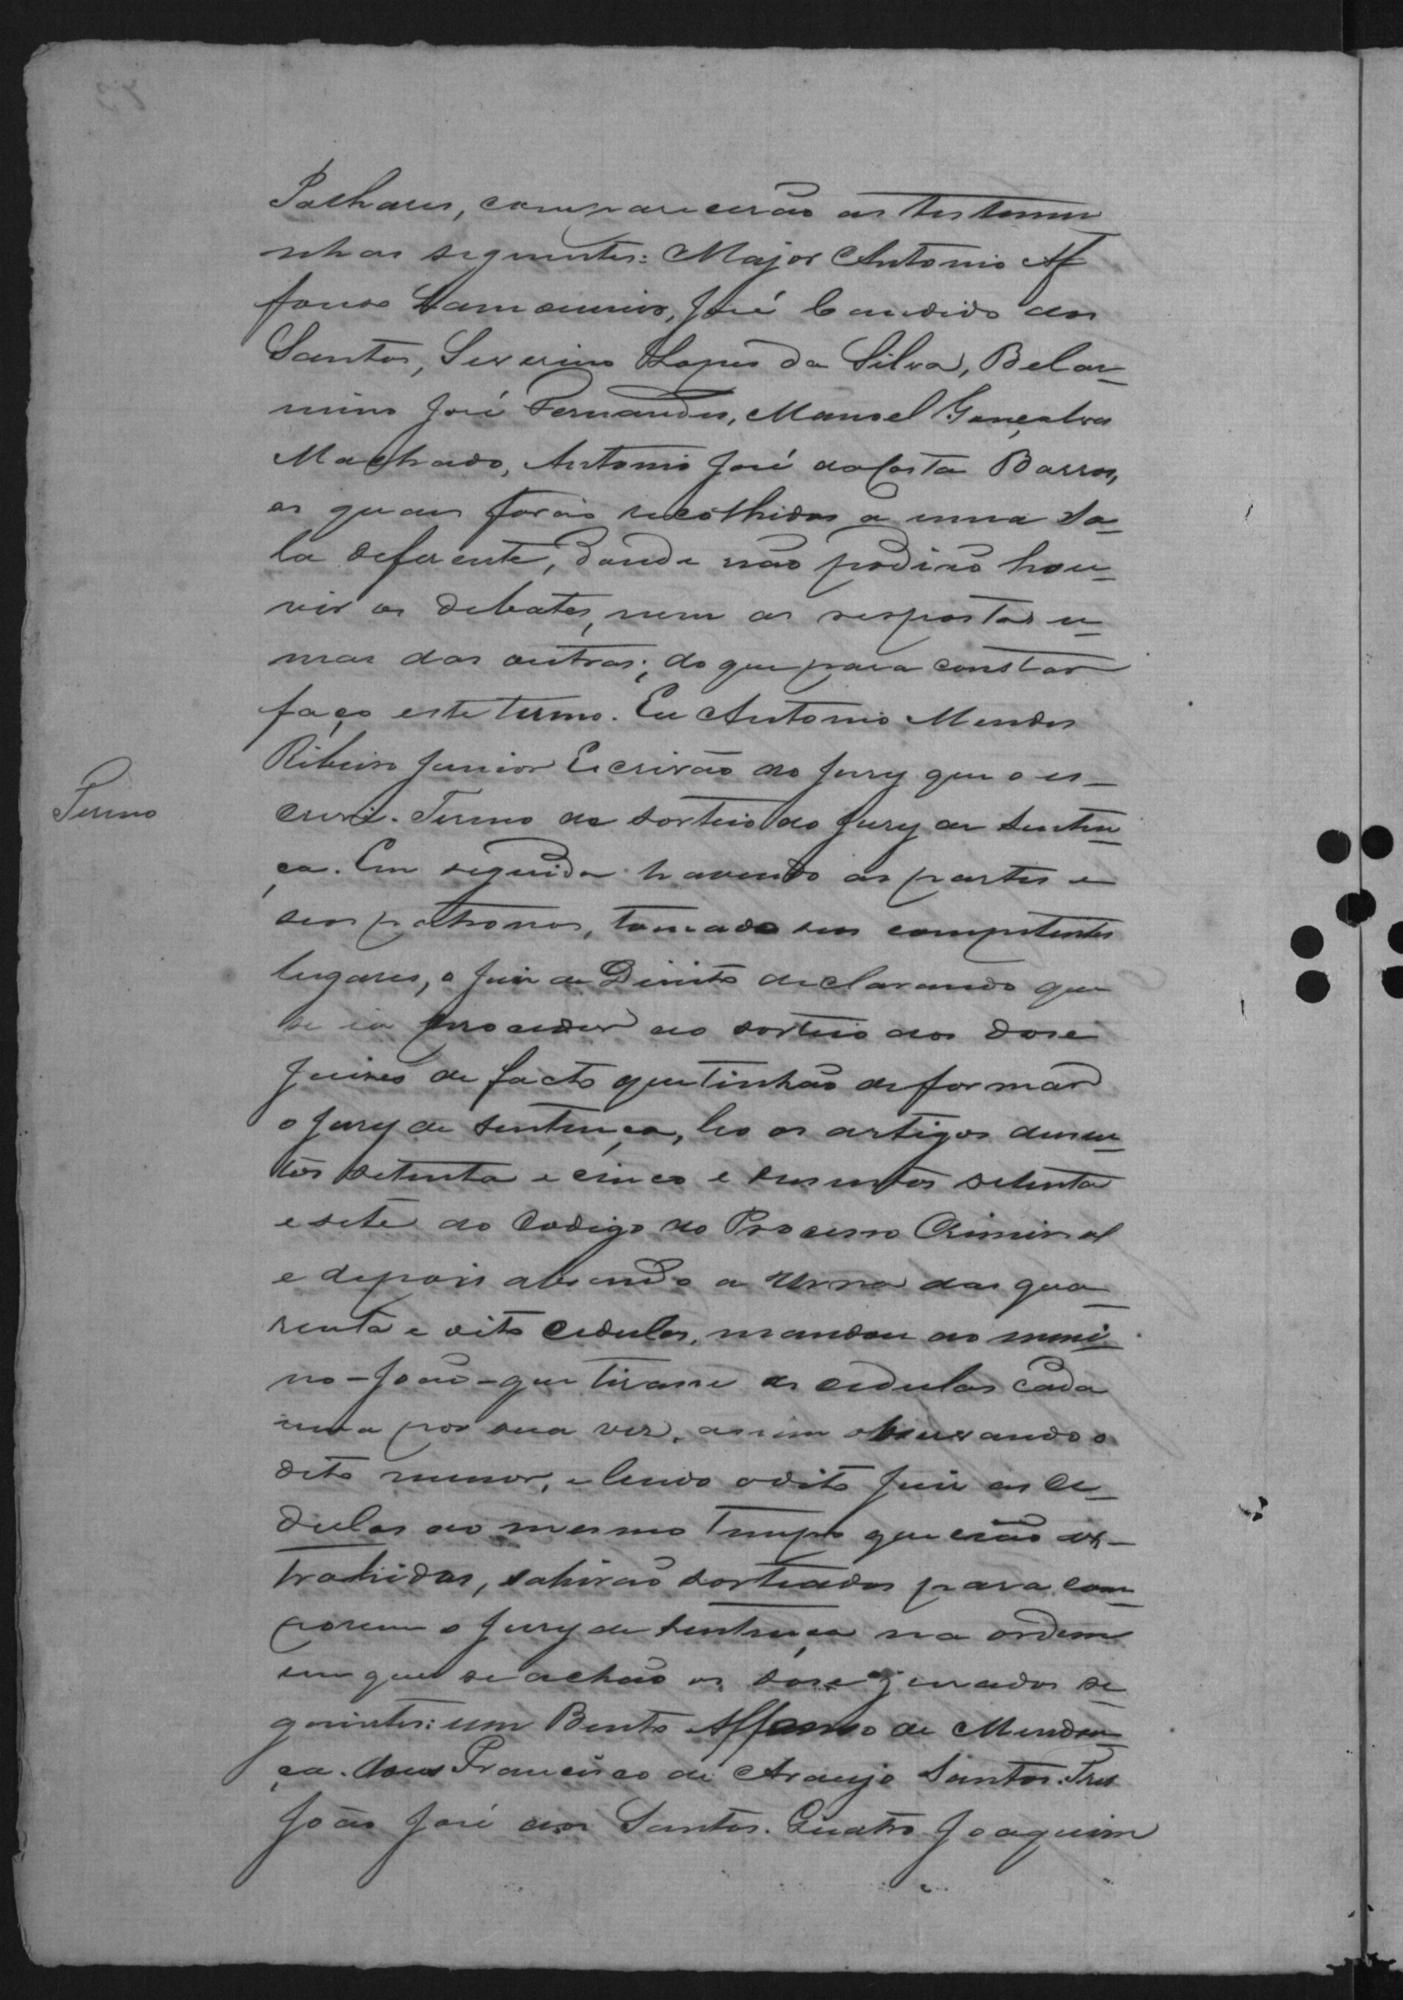 Palhares, comparecerão as testemu
nhas seguintes: Major Antonio Af
fonso José Candido dos
Santos, Severino Lopes da Silva, Belar-
mino José Fernandes, Manoel Gonçalves
Machado, Antonio José da Costa Barros,
as quaes forão recolhidas a uma sa-
la deferente, donde não podião hou-
vir os debates, nem as respostas u-
mas das outras; do que para constar
faço este termo. Eu Antonio Mendes
Ribeiro Junior Escrivão do Jury que o es-
Termo
crevi. Termo de sorteio do Jury de senten-
ça. Em seguida havendo as partes e
seos patronos, tomado seus competentes
lugares, o Juiz de Direito declarando que
se ia proceder ao sorteio dos dose
Juizes de facto que tinhão de formar
o Jury de sentença, leo os artigos dusen-
tos setenta e cinco e dusentos setenta
e sete do Codigo do Processo Criminal
e depois abrindo a urna das qua-
renta e oito cedulas, mandou ao meni-
no - João - que tirasse as cedulas cada
uma por sua vez, assim observando o
dito menor, e lendo o dito Juiz as ce-
dulas ao mesmo tempo que erão ex-
trahidas, sahirão sorteados para com-
porem o Jury de sentença na ordem
em que se achão os dose jurados se-
guintes: um Bento Affonso de Mendon-
ça. Dous Francisco de Araujo Santos. Tres
João José dos Santos. Quatro Joaquim